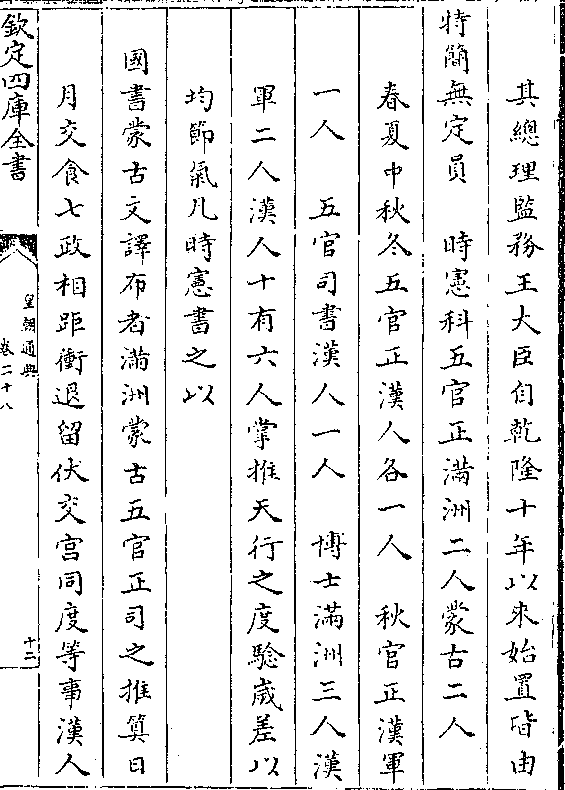 其總理監務王大臣自乾隆十年以來始置皆由
特簡無定員　時憲科五官正滿洲二人蒙古二人
春夏中秋冬五官正漢人各一人　秋官正漢軍
一人　五官司書漢人一人　博士滿洲三人漢
軍二人漢人十有六人掌推天行之度驗歲差以
均節氣凡時憲書之以
國書蒙古文譯布者滿洲蒙古五官正司之推算日
月交食七政相距衝退留伏交宮同度等事漢人
欽定四庫全書
皇朝通典
卷二十八
十二